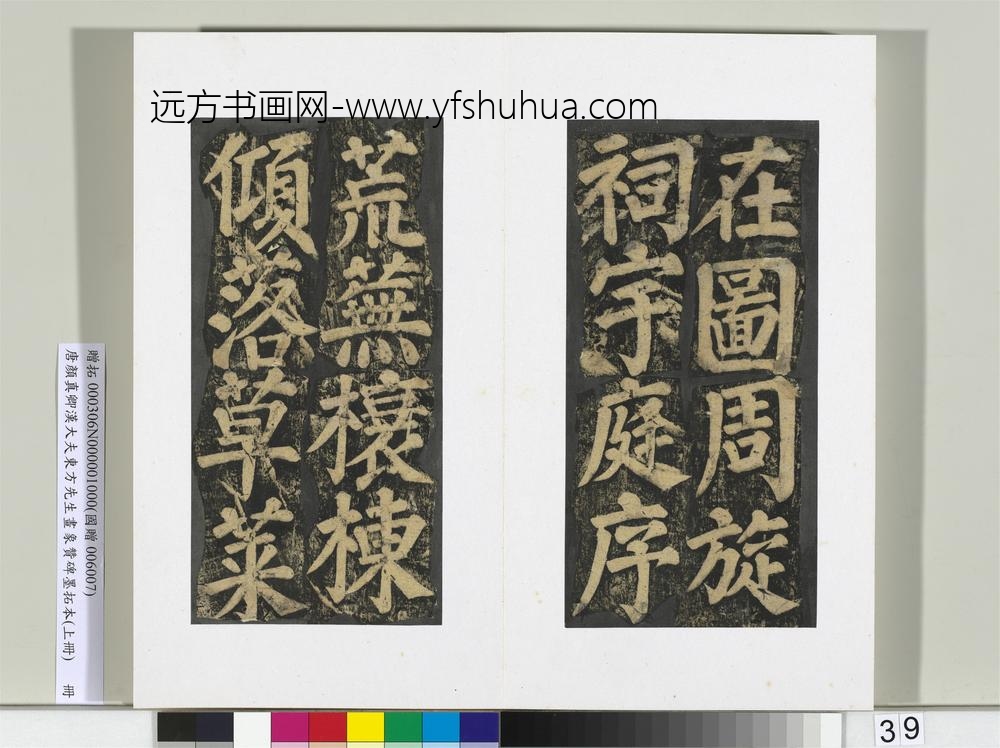 远方书画网-www.yfshuhua.com
在圖周旋
祠宇庭序
荒蕪榱棟
傾落草萊
贈拓 000306N000001000(國贈 006007)
唐顏真卿漢大夫東方先生畫象贊碑墨拓本(上冊) 冊
39